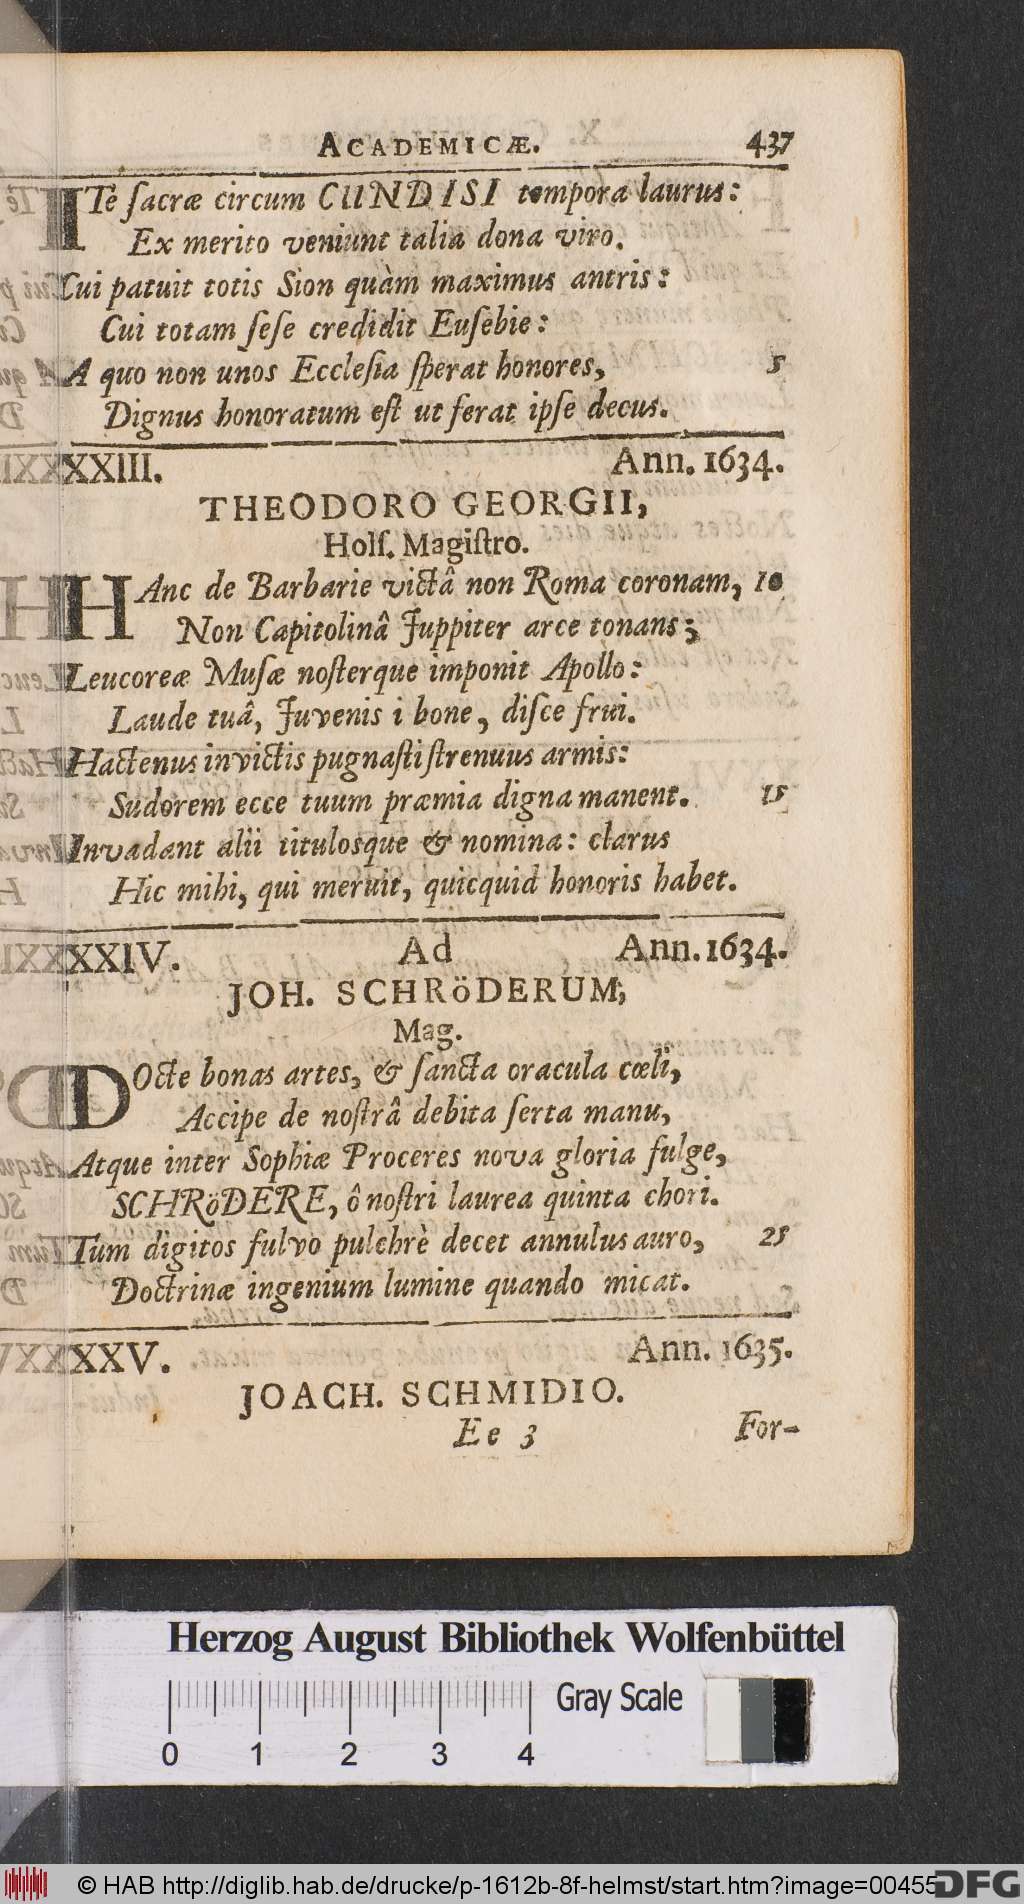 ACADEMICÆ. 437
ITe ſacræ circum CUNDISI tempora laurus:
Ex merito veniunt talia dona viro.
Cui patuit totis Sion quàm maximus antris:
Cui totam ſeſe credidit Euſebie:
A quo non unos Eccleſia ſperat honores, 5
Dignus honoratum eſt ut ferat ipſe decus.
XXIII. Ann. 1634.
THEODORO GEORGII,
Holſ. Magiſtro.
HAnc de Barbarie victâ non Roma coronam, 10
Non Capitolinâ Juppiter arce tonans;
Leucoreæ Muſæ noſterque imponit Apollo:
Laude tuâ, Juvenis i bone, diſce frui.
Hactenus invictis pugnaſti ſtrenuus armis:
Sudorem ecce tuum præmia digna manent. 15
Invadant alii titulosque & nomina: clarus
Hic mihi, qui meruit, quicquid honoris habet.
XXIV. Ad Ann. 1634.
JOH. SCHRöDERUM,
Mag.
DOcte bonas artes, & ſancta oracula cœli,
Accipe de noſtrâ debita ſerta manu,
Atque inter Sophiæ Proceres nova gloria fulge,
SCHRöDERE, ô noſtri laurea quinta chori.
Tum digitos fulvo pulchrè decet annulus auro, 25
Doctrinæ ingenium lumine quando micat.
XXV. Ann. 1635.
JOACH. SCHMIDIO.
Ee 3 For-
Herzog August Bibliothek Wolfenbüttel
Gray Scale
0 1 2 3 4
© HAB http://diglib.hab.de/drucke/p-1612b-8f-helmst/start.htm?image=00455
DFG